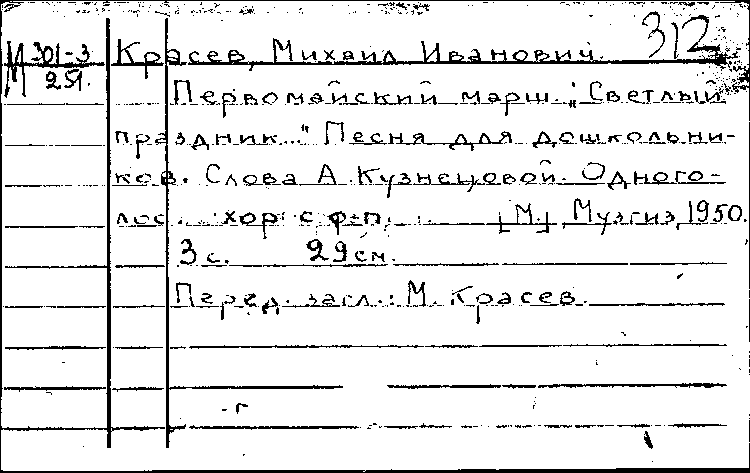 312
М 301-3
251.
Красев, Михаил Иванович.
Первомайский марш. „Светлый
праздник..." Песня для дошкольни-
ков. Слова А. Кузнецовой. Одного-
лос. хор с ф-п. [М.], Музгиз, 1950.
3 с. 29 см.
Перед загл.: М. Красев.